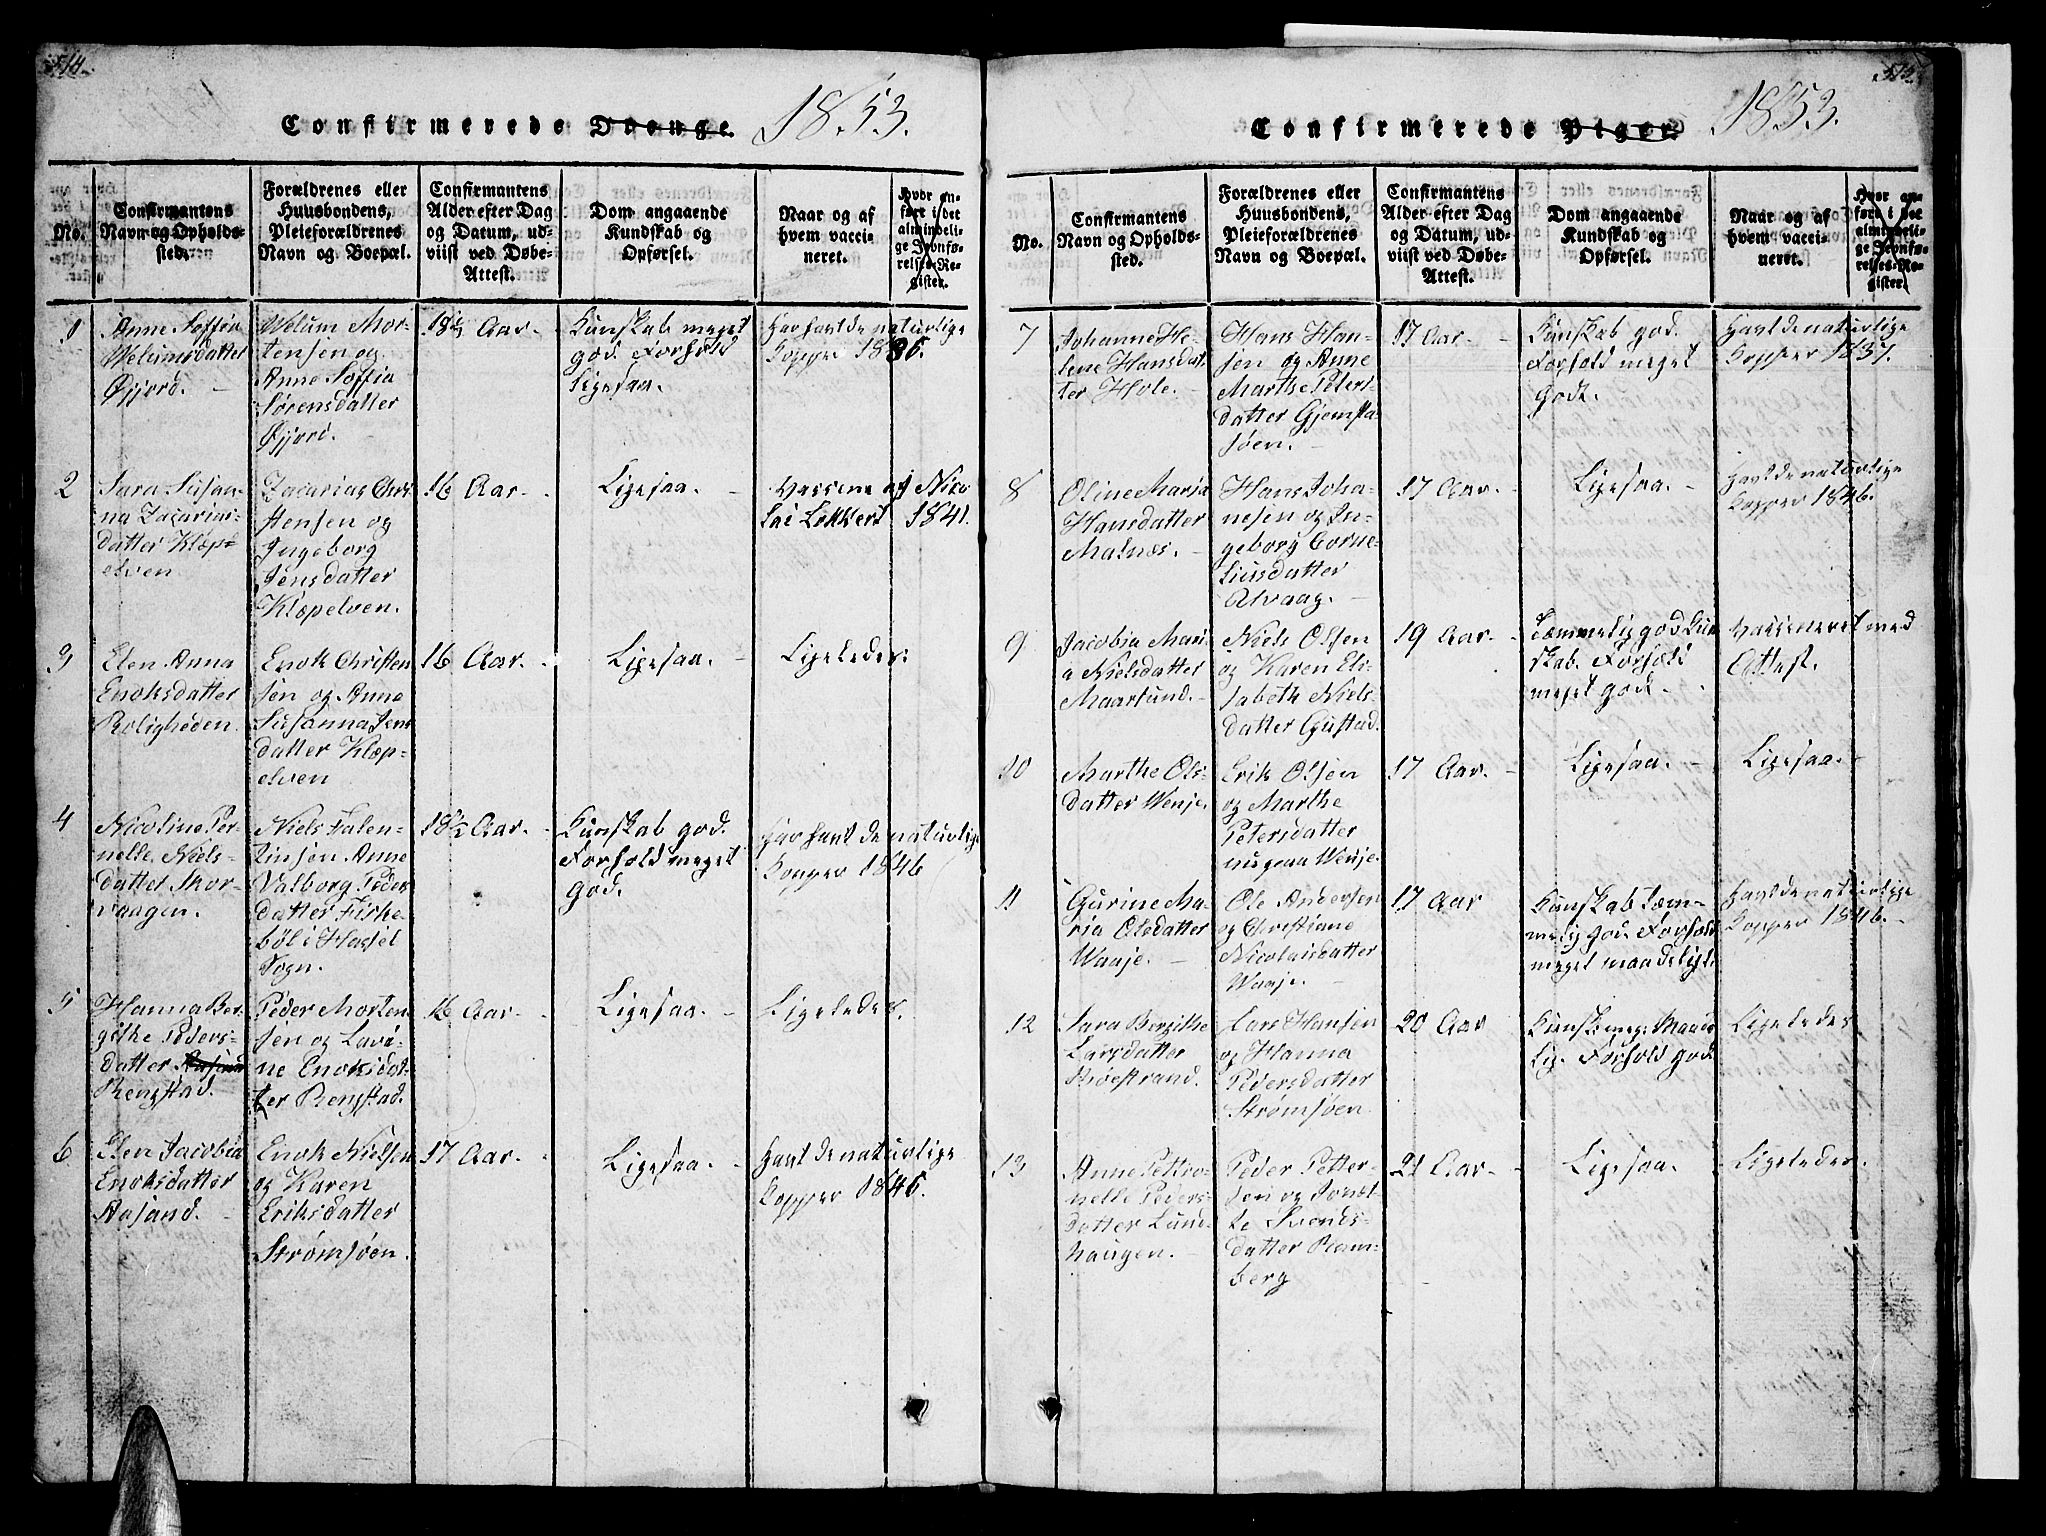 514.
Confirmerede Drenge. 1853.
No.
Confirmantens
Navn og Opholds-
sted.
Forældrenes eller
Huusbondens,
Pleieforældrenes
Navn og Boepæl.
Confirmantens
Alder efter Dag
og Datum, ud-
viist ved Døbe-
Attest.
Dom angaaende
Kundskab og
Opførsel.
Naar og af
hvem vacci-
neret.
Hvor an-
ført i det
almindeli-
ge Jevnfø-
relses-Re-
gister.
1
Anne Soffia
Welumsdatter
Øjjord.
Welum Mor-
tensen og
Anne Soffia
Sørensdatter
Øjjord.
18½ Aar.
Kunskab meget
god. Forhold
Ligesaa.
Har havt de naturlige
Kopper 1836.
2
Sara Susan-
na Zacarias-
datter Klæp-
elven
Zacarias Chri
stensen og
Ingeborg
Jensdatter
Klæpelven.
16 Aar.
Ligesaa.
Vassene af Nico
lai Lokkert 1841.
3
Elen Anna
Enoksdatter
Roligheden.
Enok Christen
sen og Anne
Susanna Jens
datter Klæp-
elven
16 Aar.
Ligesaa.
Ligeledes.
4
Nicoline Per-
nelle Niels-
datter Skor-
vaagen.
Niels Falen-
tinsen Anne
Valborg Peder
datter Fiske-
böl i Hassel
Sogn.
18½ Aar.
Kunskab god.
Forhold meget
god.
Har havt de naturlige
Kopper 1846
5
Hanna Ber-
githe Peders-
datter
Rengstad.
Peder Morten
sen og Lavi-
ne Enoksdat-
ter Rengstad.
16 Aar.
Ligesaa.
Ligeledes.
6
Elen Jacobia
Enoksdatter
Aasand.
Enok Nielsen
og Karen
Eriksdatter
Strømsøen.
17 Aar.
Ligesaa.
Havt de naturlige
Kopper 1846.
515.
Confirmerede Piger. 1853.
No.
Confirmantens
Navn og Opholds-
sted.
Forældrenes eller
Huusbondens,
Pleieforældrenes
Navn og Boepæl.
Confirmantens
Alder efter Dag
og Datum, ud-
viist ved Døbe-
Attest.
Dom angaaende
Kundskab og
Opførsel.
Naar og af
hvem vacci-
neret.
Hvor an-
ført i det
almindeli-
ge Jevnfø-
relses-Re-
gister.
7
Johanne He-
lene Hansdat-
ter Hole.
Hans Han-
sen og Anne
Marthe Peters
datter Gjemsta-
søen.
17 Aar.
Kunskab god.
Forhold meget
godt.
Havt de naturlige
Kopper 1837.
8
Oline Maria
Hansdatter
Malnæs.
Hans Joha-
nesen og In-
geborg Corne-
liusdatter
Alvaag.
17 Aar.
Ligesaa.
Havt de naturlige
Kopper 1846.
9
Jacobia Mari-
a Nielsdatter
Maarsund.
Niels Olsen
og Karen Eli-
sabeth Niels-
datter Gustad.
19 Aar.
Tæmmelig god Kun
skab. Forhold
meget godt.
Vasseneret med
Attest.
10
Marthe Ols-
datter Wenje.
Erik Olsen
og Marthe
Petersdatter
Wenje.
17 Aar.
Ligesaa.
Ligesaa.
11
Gurine Ma-
ria Olsdatter
Waaje.
Ole Andersen
og Christiane
Nicolaisdatter
Waaje.
17 Aar
Kunskab tæm-
melig god. Forhold
meget maadeligt.
Havt de naturlige
Kopper 1846.
12
Sara Bergithe
Larsdatter
Lars Hansen
og Hanna
Pedersdatter
Strømsøen
20 Aar
Kunsk. meg: Maade
lig. Forhold god.
Ligeledes
13
Anne Pettro-
nelle Peders-
datter Lund-
haugen.
Peder Petter-
sen og Jonet-
te Svends-
datter Ram-
berg
21 Aar.
Ligesaa.
Ligeledes.